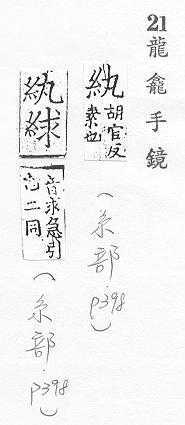 21
龍龕手鏡
紈胡官反素也
(糸部.p398)
紈絿
音求急引也二同
(糸部.p398)